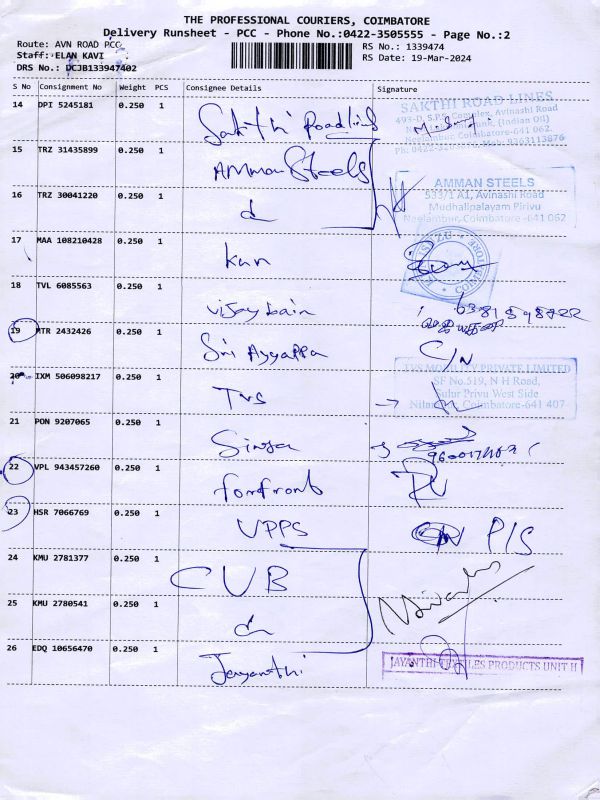 THE PROFESSIONAL COURIERS, COIMBATORE
Delivery Runsheet - PCC - Phone No.:0422-3505555 - Page No.:2
Route: AVN ROAD PCC
RS No.: 1339474
Staff: ELAN KAVI
RS Date: 19-Mar-2024
DRS No.: DCJB133947402
S No Consignment No Weight PCS Consignee Details Signature
14 DPI 5245181 0.250 1 Sakthi Roadlines
SAKTHI ROAD LINES
15 TRZ 31435899 0.250 1 Amman Steels
AMMAN STEELS
533/1 A1, Avinashi Road
Mudhalipalayam Pirivu
Neelambur, Coimbatore -641 062
16 TRZ 30041220 0.250 1
17 MAA 108210428 0.250 1 Kun
18 TVL 6085563 0.250 1 Vijay bain
19 MTR 2432426 0.250 1 Sri Ayyappa C/N
20 IXM 506098217 0.250 1 TVS
TVS MOBILITY PRIVATE LIMITED
SF No.519, N H Road,
Sulur Privu West Side
Coimbatore-641 407
21 PON 9207065 0.250 1
22 VPL 943457260 0.250 1 forefront
23 HSR 7066769 0.250 1 UPPS P/S
24 KMU 2781377 0.250 1 CUB
25 KMU 2780541 0.250 1
26 EDQ 10656470 0.250 1 Jayanthi
JAYANTHI TEXTILES PRODUCTS UNIT II